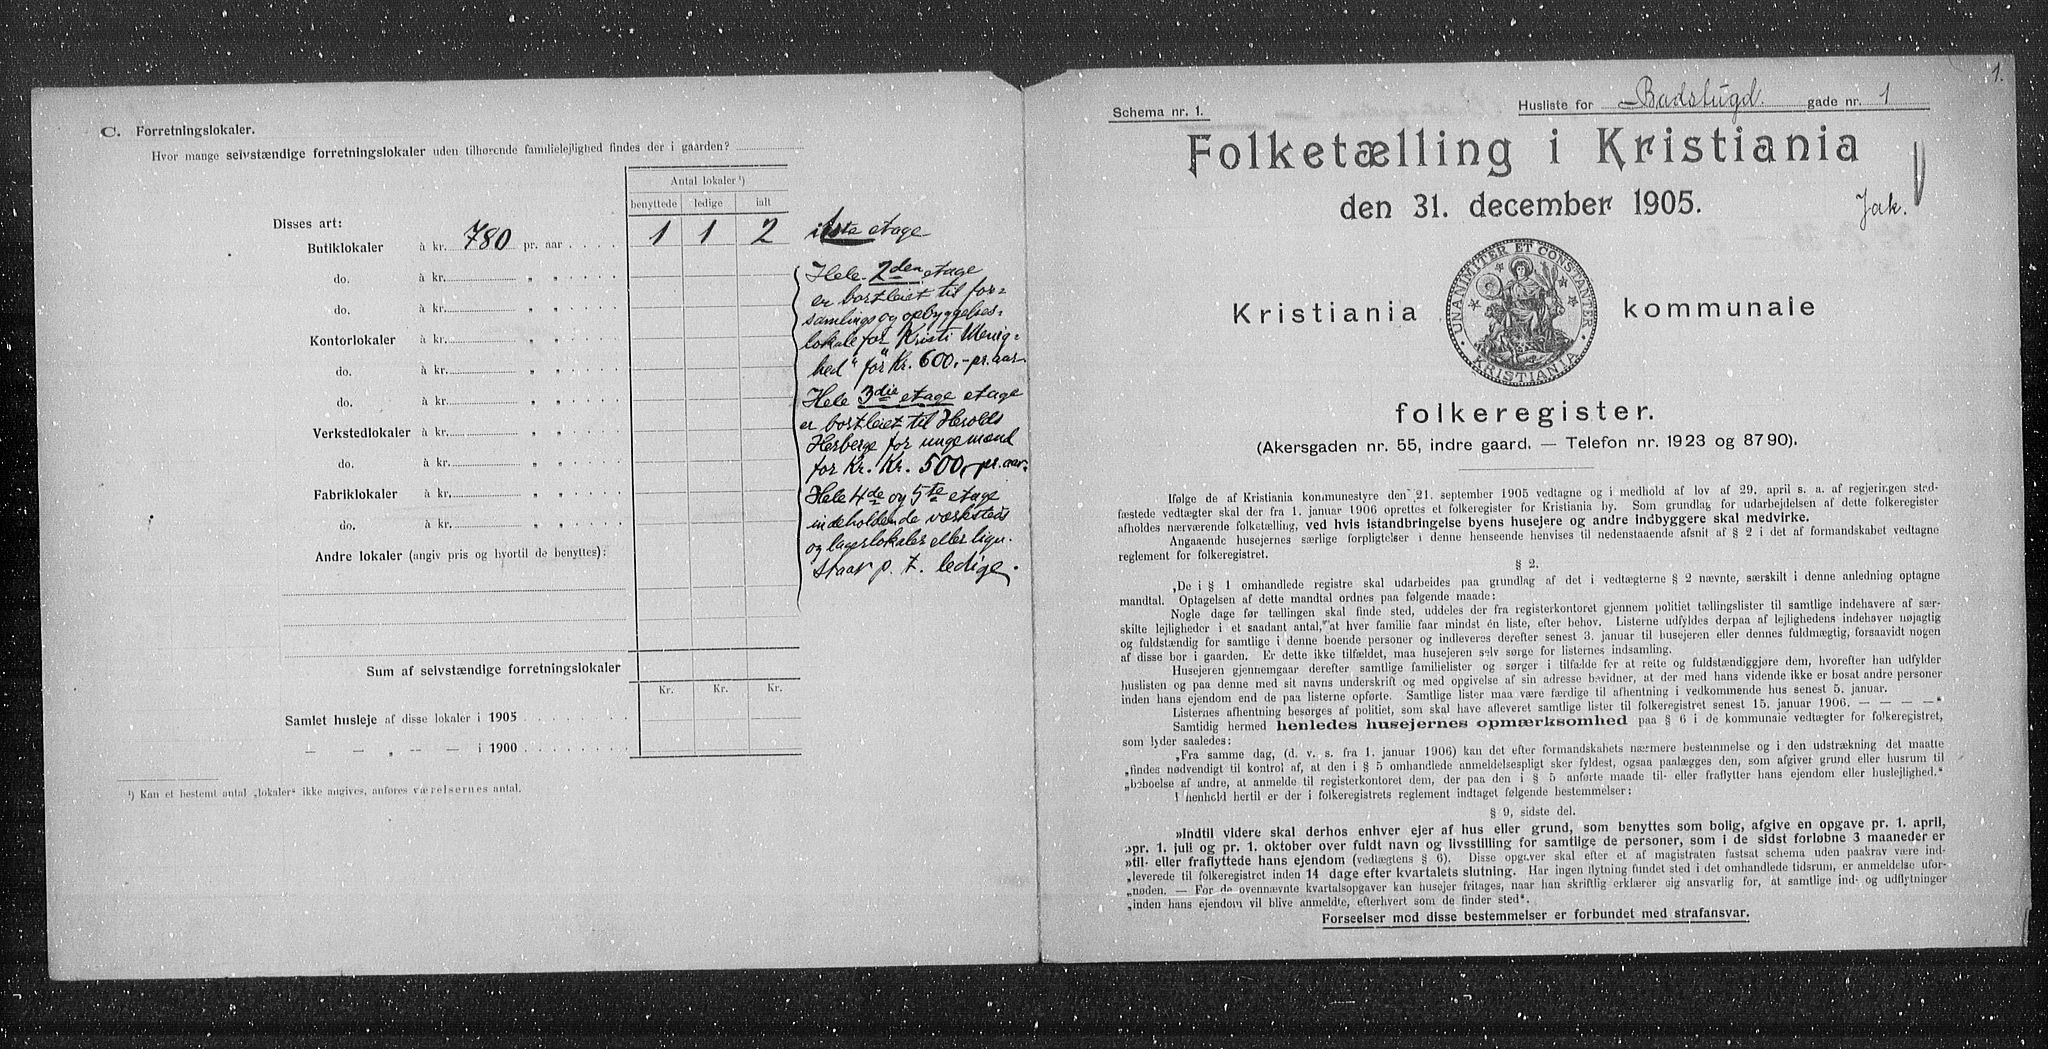 C. Forretningslokaler.
Hvor mange selvstændige forretningslokaler uden tilhørende familielejlighed findes der i gaarden?
Antal lokaler ¹)
benyttede ledige ialt
Disses art:
Butiklokaler à kr. 780 pr. aar 1 1 2
do. à kr. „ „
do. à kr. „ „
Kontorlokaler à kr. „ „
do. à kr. „ „
do. à kr. „ „
Verkstedlokaler à kr. „ „
do. à kr. „ „
Fabriklokaler à kr. „ „
do. à kr. „ „
Andre lokaler (angiv pris og hvortil de benyttes):
Sum af selvstændige forretningslokaler
Kr. Kr. Kr.
Samlet husleje af disse lokaler i 1905
— — „ — — i 1900
¹) Kan et bestemt antal „lokaler“ ikke angives, anføres værelsernes antal.
etage
Hele 2den etage
er bortleiet til for=
samlings og opbyggelses=
lokale for „Kristi Menig=
hed“ for Kr. 600,- pr. aar
Hele 3die etage etage
er bortleiet til Herolds
Herberge for unge mænd
for Kr. Kr. 500,- pr. aar.
Hele 4de og 5te etage
indeholdende værksteds
og lagerlokaler eller lign.
staar p. t. ledige.
1.
Schema nr. 1.
Husliste for Badstugd. gade nr. 1
Folketælling i Kristiania
den 31. december 1905.
Jak.
Kristiania kommunale
UNANIMITER ET CONSTANTER
KRISTIANIA
folkeregister.
(Akersgaden nr. 55, indre gaard. — Telefon nr. 1923 og 8790).
Ifølge de af Kristiania kommunestyre den 21. september 1905 vedtagne og i medhold af lov af 29. april s. a. af regjeringen stad-
fæstede vedtægter skal der fra 1. januar 1906 oprettes et folkeregister for Kristiania by. Som grundlag for udarbejdelsen af dette folkeregister
afholdes nærværende folketælling, ved hvis istandbringelse byens husejere og andre indbyggere skal medvirke.
Angaaende husejernes særlige forpligtelser i denne henseende henvises til nedenstaaende afsnit af § 2 i det af formandskabet vedtagne
reglement for folkeregistret.
§ 2.
„De i § 1 omhandlede registre skal udarbeides paa grundlag af det i vedtægterne § 2 nævnte, særskilt i denne anledning optagne
mandtal. Optagelsen af dette mandtal ordnes paa følgende maade:
Nogle dage før tællingen skal finde sted, uddeles der fra registerkontoret gjennem politiet tællingslister til samtlige indehavere af sær-
skilte lejligheder i et saadant antal, at hver familie faar mindst én liste, efter behov. Listerne udfyldes derpaa af lejlighedens indehaver nøjagtig
og fuldstændig for samtlige i denne boende personer og indleveres derefter senest 3. januar til husejeren eller dennes fuldmægtig, forsaavidt nogen
af disse bor i gaarden. Er dette ikke tilfældet, maa husejeren selv sørge for listernes indsamling.
Husejeren gjennemgaar derefter samtlige familielister og sørger i tilfælde for at rette og fuldstændiggjøre dem, hvorefter han udfylder
huslisten og paa denne med sit navns underskrift og med opgivelse af sin adresse bevidner, at der med hans vidende ikke er bosat andre personer
inden hans ejendom end de paa listerne opførte. Samtlige lister maa være færdige til afhentning i vedkommende hus senest 5. januar.
Listernes afhentning besørges af politiet, som skal have afleveret samtlige lister til folkeregistret senest 15. januar 1906. — — — —“
Samtidig hermed henledes husejernes opmærksomhed paa § 6 i de kommunale vedtægter for folkeregistret,
som lyder saaledes:
„Fra samme dag, (d. v. s. fra 1. januar 1906) kan det efter formandskabets nærmere bestemmelse og i den udstrækning det maatte
„findes nødvendigt til kontrol af, at den i § 5 omhandlede anmeldelsespligt sker fyldest, ogsaa paalægges den, som afgiver grund eller husrum til
„beboelse af andre, at anmelde til registerkontoret dem, der paa den i § 5 anførte maade til- eller fraflytter hans ejendom eller huslejlighed.“
I henhold hertil er der i folkeregistrets reglement indtaget følgende bestemmelser:
§ 9, sidste del.
»Indtil videre skal derhos enhver ejer af hus eller grund, som benyttes som bolig, afgive en opgave pr. 1. april,
»pr. 1. juli og pr. 1. oktober over fuldt navn og livsstilling for samtlige de personer, som i de sidst forløbne 3 maaneder er
»til- eller fraflyttede hans ejendom (vedtægtens § 6). Disse opgaver skal efter et af magistraten fastsat schema uden paakrav være ind-
„leverede til folkeregistret inden 14 dage efter kvartalets slutning. Har ingen flytning fundet sted i det omhandlede tidsrum, er anmeldelse ufor-
„nøden. — For de ovennævnte kvartalsopgaver kan husejer fritages, naar han skriftlig erklærer sig ansvarlig for, at samtlige ind- og udflytninger
„inden hans ejendom vil blive anmeldte, efterhvert som de finder sted“.
Forseelser mod disse bestemmelser er forbundet med strafansvar.